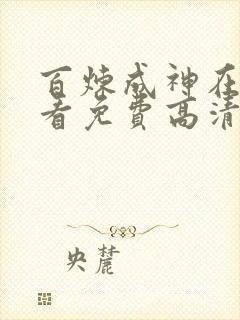 百炼成神在
看免费高清
央麓